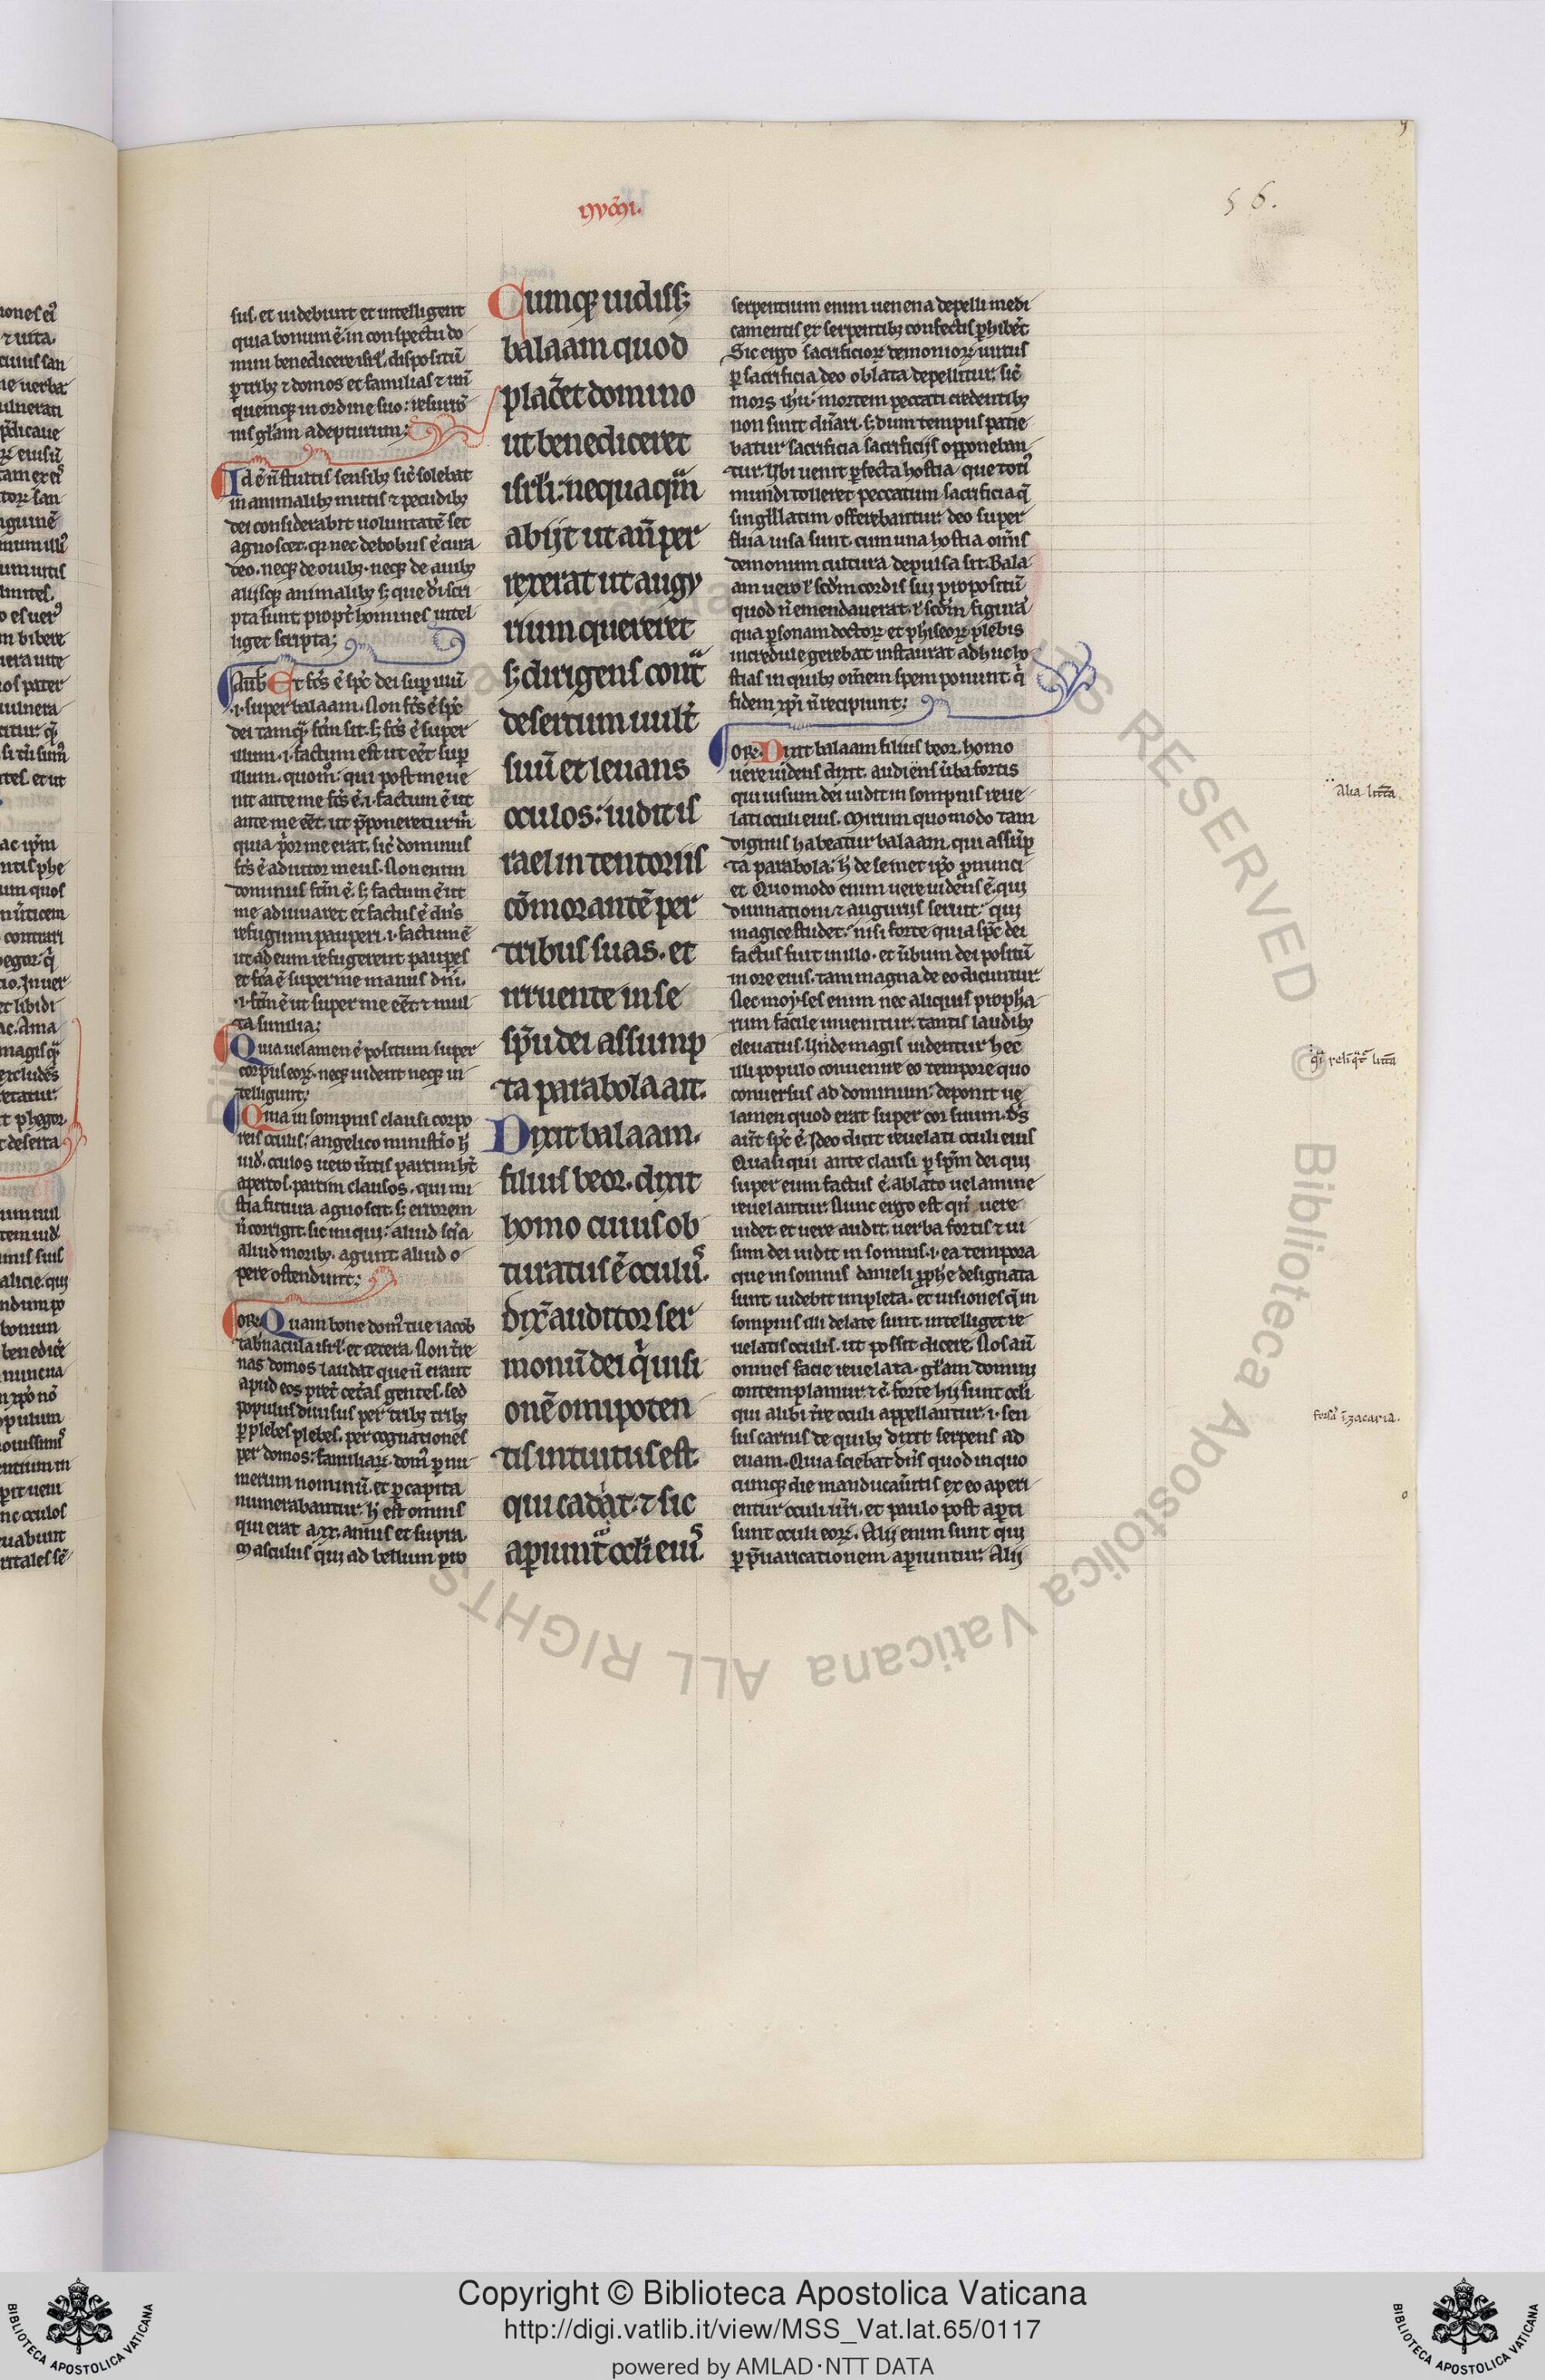 nvm̄i.
56.
sus. et uidebunt et intelligent
quia bonum ē. in conspectu do
mini benedicere isrl'. dispositū
ꝑ tribꝫ ⁊ domos et familias ⁊ un̄
quemqꝫ in ordine suo: resurr̄o
nis gl̄am adepturum;
Id ē n̄ stultis sensibꝫ sic̄ solebat
in animalibꝫ mutis ⁊ pecudibꝫ
dei considerabit uoluntatē set
agnoscet. qꝛ nec de bobus ē cura
deo. neqꝫ de ouibꝫ. neqꝫ de auibꝫ
alijsqꝫ animalibꝫ sꝫ que dī scri
pta sunt. propt̄ homines intel
liget scripta;
Aub Et fc̄s ē spc̄ dei suꝑ illū
.i. super balaam. Non fc̄s ē spc̄
dei tamqꝫ fc̄m sit. sꝫ fc̄s ē super
illum .i. factum est ut eēt suꝑ
illum. quom̄: qui post me ue
nit ante me fc̄s ē .i. factum ē ut
ante me eēt. ut p̄poneretur m̄
quia p̄or me erat. sic̄ dominus
fc̄s ē adiutor meus. Non enim
dominus fc̄m ē. sꝫ factum ē ut
me adiuuaret et factus ē dn̄s
refugium pauperi .i. factum ē
ut ad eum refugerent pauꝑes
et fc̄a ē super me manus dn̄i.
.i. fc̄m ē ut super me eēt ⁊ mul
ta similia;
Quia uelamen ē positum super
corpus eoꝝ. neqꝫ uident neqꝫ in
telligunt;
Quia in sompnis clausi corpo
reis oculis. angelico ministio h̄
uid. oculos uero m̄tis partim ht̄
apertos. partim clausos. qui mi
stia futura agnoscit. sꝫ errorem
n̄ corrigit. sic in qui: aliud sc̄a
aliud moribꝫ. agunt aliud o
pere ostendunt;
ORI. Quam bone dom̄ tue iacob
tab̄nacula isrl'. et cetera. Non t̄re
nas domos laudat que n̄ erant
apud eos pret̄ cet̄as gentes. sed
populus diuisus per tribꝫ tribꝫ
ꝑ plebes plebes. per cognationes
per domos. familiaꝝ. dom̄ ꝑ nu
merum nominū. et ꝑ capita
numerabantur. h̄ est omnis
qui erat a .xx. annis et supra
masculus qui ad bellum pro
Cumqꝫ uidissꝫ
balaam quod
plac̄et domino
ut benediceret
isrl'i: nequaqm̄
abijt ut an̄ per
rexerat ut augu
rium quereret
sꝫ dirigens cont̄
desertum uult̄
suū et leuans
oculos: uidit is
rael in tentoriis
cōmorantē per
tribus suas. et
irruente in se
sp̄u dei assump
ta parabola ait.
Dixit balaam.
filius beor. dixit
homo cuius ob
turatus ē oculꝰ.
dix̄ auditor ser
monū dei q̇ uisi
onē omnipoten
tis intuitus est.
qui cadit. ⁊ sic
aꝑiunt̄ ocl'i eiꝰ.
serpentium enim uenena depelli medi
camentis ex serpentibꝫ confectis ꝓhibēt
Sic ergo sacrificioꝝ demonioꝝ uirtus
ꝑ sacrificia deo oblata depellitur. sic̄
mors ih̄u mortem peccati credentibꝫ
non sinit dn̄ari. sꝫ dum tempus patie
batur sacrificia sacrificijs opponeban
tur. Ubi uenit ꝑfecta hostia que totiꝰ
mundi tolleret peccatum sacrificia q̄
singillatim offerebantur deo super
flua uisa sunt. cum una hostia om̄is
demonum cultura depulsa sit. Bala
am uero ł scd̄m cordis sui propositū
quod n̄ emendauerat. ł scd̄m figurā
qua ꝑsonam doctoꝝ et phiseoꝝ plebis
incredule gerebat instaurat adhuc ho
stias in quibꝫ om̄em spem ponunt q̄
fidem xp̄i n̄ recipiunt;
ORI. Dixit balaam filius beor. homo
uere uidens dixit. audiens ūba fortis
qui uisum dei uidit in sompnis reue
lati oculi eius. Mirum quomodo tam
dignus habeatur balaam. qui assūp
ta parabola: h̄ de semet ip̄o ꝓnunci
et Quomodo enim uere uidens ē. qui
diuinationi ⁊ augurijs seruit. qui
magice studet. nisi forte quia spc̄ dei
factus fuit in illo. et ūbum dei positū
in ore eius. tam magna de eo dicuntur
Nec moyses enim nec aliquis propħa
rum facile inuenitur. tantis laudibꝫ
eleuatus. Unde magis uidentur hec
illi populo conuenire eo tempore quo
conuersus ad dominum deponit ue
lamen quod erat super cor suum. dn̄s
aut̄ spc̄ ē. Ideo dicit reuelati oculi eius
Quasi qui ante clausi ꝑ sp̄m dei qui
super eum factus ē. ablato uelamine
reuelantur. Nunc ergo est qn̄ uere
uidet. et uere audit. uerba fortis ⁊ ui
sum dei uidit in somnis .i. ea tempora
que in somnis danieli ꝓphe designata
sunt uidebit impleta. et uisiones q̄ in
sompnis illi delate sunt. intelliget re
uelatis oculis. ut possit dicere. Nos aū
omnes facie reuelata. gl̄am domini
contemplamur ⁊ c̄. forte hij sunt ocl'i
qui alibi t̄re oculi appellantur .i. sen
sus carnis de quibꝫ dixit serpens ad
euam. Quia sciebat dn̄s quod in quo
cumqꝫ die manducau̅tis ex eo aperi
entur oculi ur̄i. et paulo post aꝑti
sunt oculi eoꝝ. Alij enim sunt qui
ꝑ p̄uaricationem aꝑiuntur. Alij
Alia litt̄a
izacaria.
Copyright © Biblioteca Apostolica Vaticana
http://digi.vatlib.it/view/MSS_Vat.lat.65/0117
powered by AMLAD·NTT DATA
BIBLIOTECA APOSTOLICA VATICANA
BIBLIOTECA APOSTOLICA VATICANA
© Biblioteca Apostolica Vaticana ALL RIGHTS RESERVED